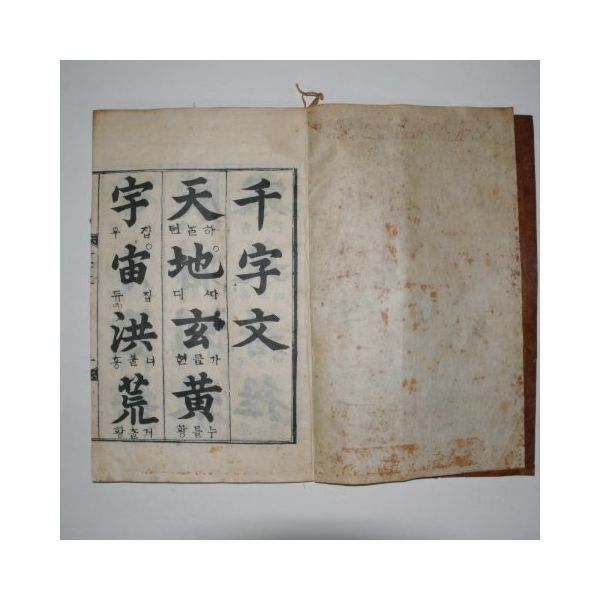 千字文
天 하늘텬
地 ᄯᅡ디
玄 가믈현
黃 누를황
宇 집우
宙 집듀
洪 너블홍
荒 거츨황